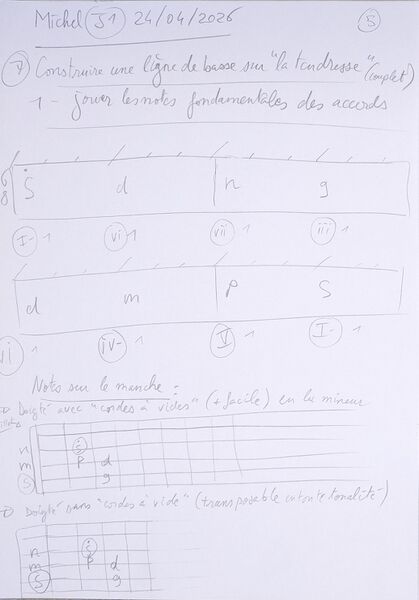 Michel J1 24/04/2026 B
Construire une ligne de basse sur "la tendresse" (couplet)
1 - jouer les notes fondamentales des accords
6 8 S d n g
I- 1 vi 1 vii 1 iii 1
d m P S
vi 1 iv- 1 V 1 I- 1
Notes sur le manche :
Doigté avec "cordes à vides" (+ facile) en la mineur
S
n
m P d
S g
Doigté sans "cordes à vide" (transposable en toute tonalité)
n S
m P d
S g